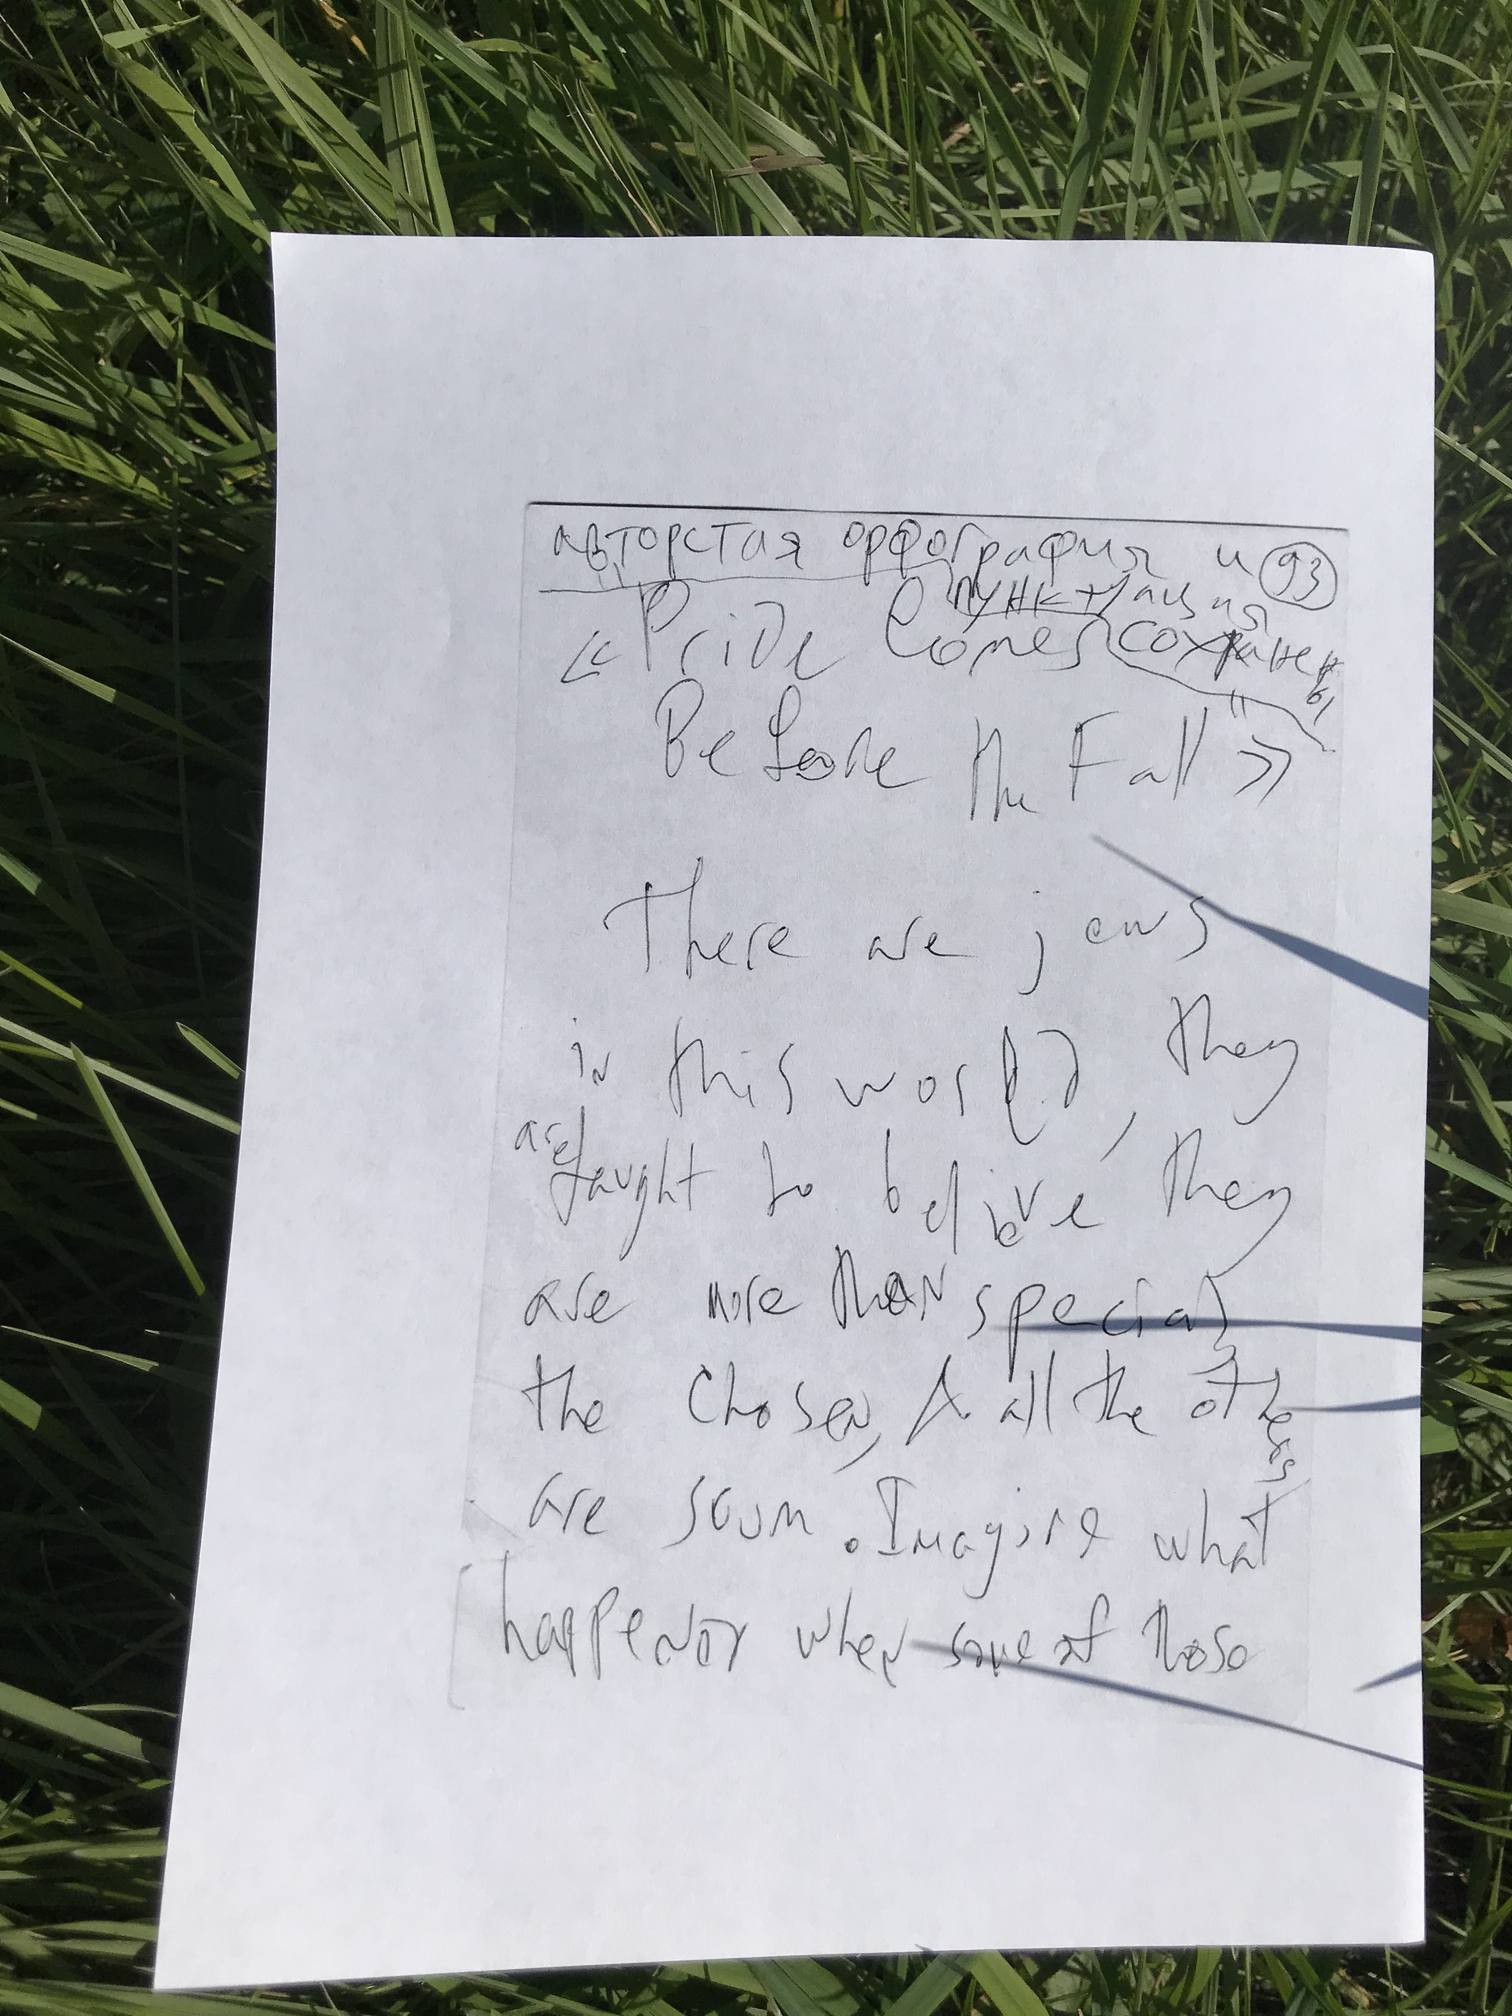 авторстая орфография и 93
пунктуация
сохранены
«Pride Comes
Before the Fall»
There are jews
in this world, they
are taught to believe they
are more than special,
the chosen, & all the others
are scum. Imagine what
happens when some of those